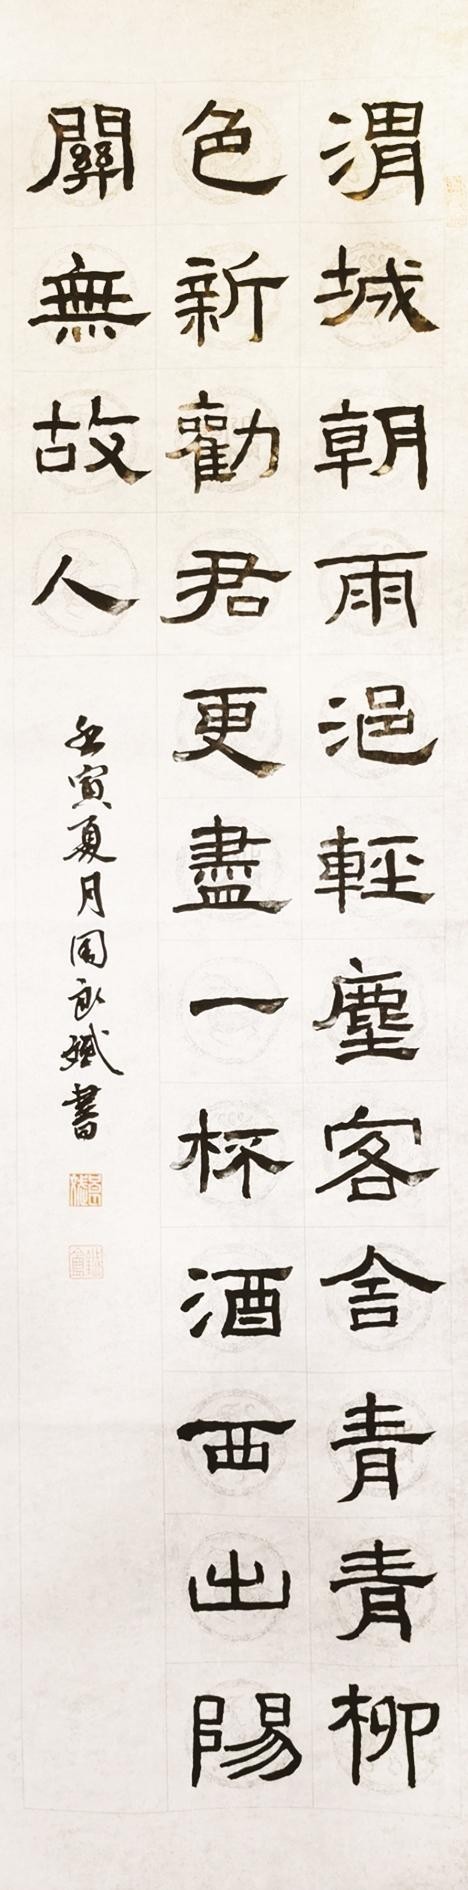 渭城朝雨浥輕塵客舍青青柳
色新勸君更盡一杯酒西出陽
關無故人
壬寅夏月周永斌書